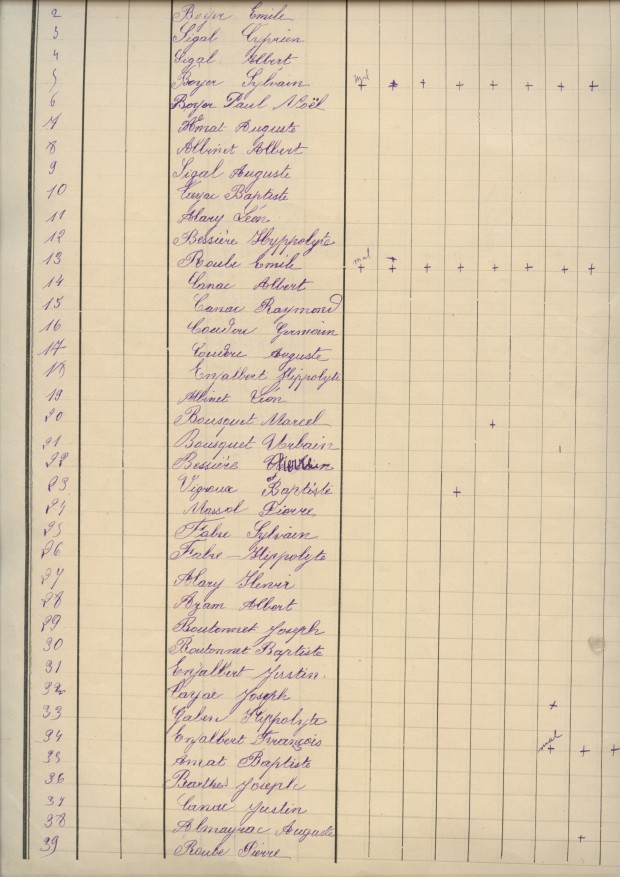 2 Boyer Emile
3 Sigal Cyprien
4 Sigal Albert
5 Boyer Sylvain mal + + + + + + + +
6 Boyer Paul Noël
7 Amat Auguste
8 Albinet Albert
9 Sigal Auguste
10 Cayac Baptiste
11 Alary Léon
12 Bessière Hyppolyte
13 Roube Emile mal + + + + + + + +
14 Canac Albert
15 Canac Raymond
16 Coudere Germain
17 Coudere Auguste
18 Enjalbert Hippolyte
19 Albinet Léon
20 Bousquet Marcel +
21 Bousquet Urbain
22 Bessière
23 Vigroux Baptiste +
24 Massol Pierre
25 Fabre Sylvain
26 Fabre - Hippolyte
27 Alary Henri
28 Azam Albert
29 Boutonnet Joseph
30 Boutonnet Baptiste
31 Enjalbert Justin.
32 Cayac Joseph
33 Galen Hippolyte +
34 Enjalbert François
35 Amat Baptiste mal + + +
36 Barthes Joseph
37 Canac Justin
38 Almayrac Auguste
39 Roube Pierre +